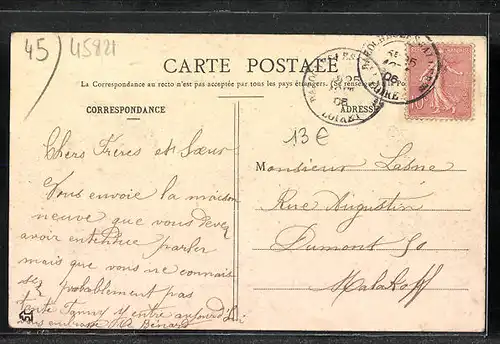 45) 45821
CARTE POSTALE
La Correspondance au recto n'est pas acceptée par tous les pays étrangers. (Se renseigner
CORRESPONDANCE
ADRESSE
13 €
Chers Frères et Sœur
Vous envoie la maison
neuve que vous devez
avoir entendue parler
mais que vous ne connais
sez probablement pas
tente Fanny y entre aujourd'hui
vous embrasse Bénard
Monsieur Lesne
Rue Augustin
Dumont 50
Malakoff
06
LOIRET
06
LOIRET